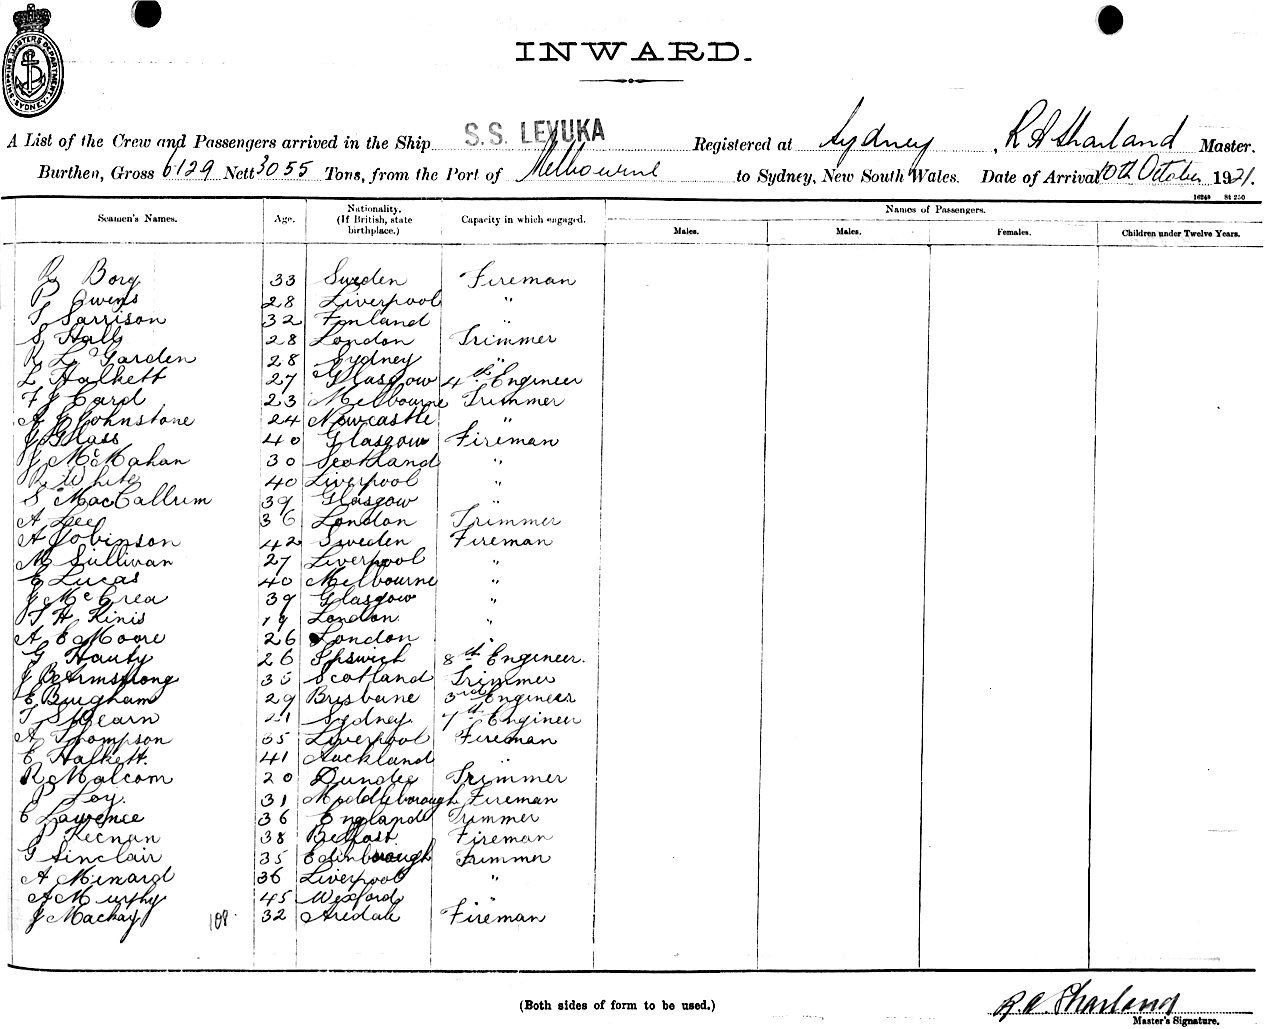 SHIPPING MASTERS DEPARTMENT SYDNEY
INWARD.
A List of the Crew and Passengers arrived in the Ship S.S. LEVUKA Registered at Sydney, R A Sharland Master.
Burthen, Gross 6129 Nett 3055 Tons, from the Port of Melbourne to Sydney, New South Wales. Date of Arrival 10th October 1921.
16249 St 250
Seamen's Names. Age. Nationality. (If British, state birthplace.) Capacity in which engaged. Names of Passengers.
Males. Males. Females. Children under Twelve Years.
R Borg 33 Sweden Fireman
P Owens 28 Liverpool "
T Sarrison 32 Finland "
S Hall 28 London Trimmer
R L Garden 28 Sydney "
L Halkett 27 Glasgow 4th Engineer
F J Card 23 Melbourne Trimmer
A E Johnstone 24 Newcastle "
J Glass 40 Glasgow Fireman
J McMahan 30 Scotland "
R White 40 Liverpool "
S MacCallum 39 Glasgow "
A Lee 36 London Trimmer
A Robinson 42 Sweden Fireman
M Sullivan 27 Liverpool "
E Lucas 40 Melbourne "
J McCrea 39 Glasgow "
T H Kinis 19 London "
A E Moore 26 London "
G Hauty 26 Ipswich 8th Engineer.
J B Armstrong 35 Scotland Trimmer
E Bingham 29 Brisbane 3rd Engineer
T S Hearn 21 Sydney 7th Engineer
A Thompson 35 Liverpool Fireman
C Halkett. 41 Auckland "
R Malcom 20 Dundee Trimmer
P Loy. 31 Middleborough Fireman
C Lawrence 36 England Trimmer
P Keenan 38 Belfast Fireman
G Sinclair 35 Edinborough Trimmer
A Minard 36 Liverpool "
A Murthy 45 Wexford "
J Mackay 108 32 Fireman
(Both sides of form to be used.)
R. A. Sharland
Master's Signature.